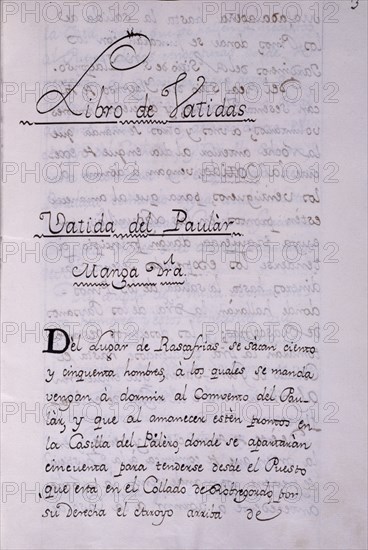 Libro de Vatidas
Vatida del Paulàr
Manga Dra.
Del Lugar de Rascafrias se sacan ciento
y cinquenta hombres, à los quales se manda
vengan à dormir al Comvento del Pau-
làr, y que al amanecer estèn promtos en
la Casilla del Palèro, donde se apartaràn
cincuenta para tenderse desde el Puesto
que està en el Collado de Robregordo, por
su derecha el Arroyo arriba de